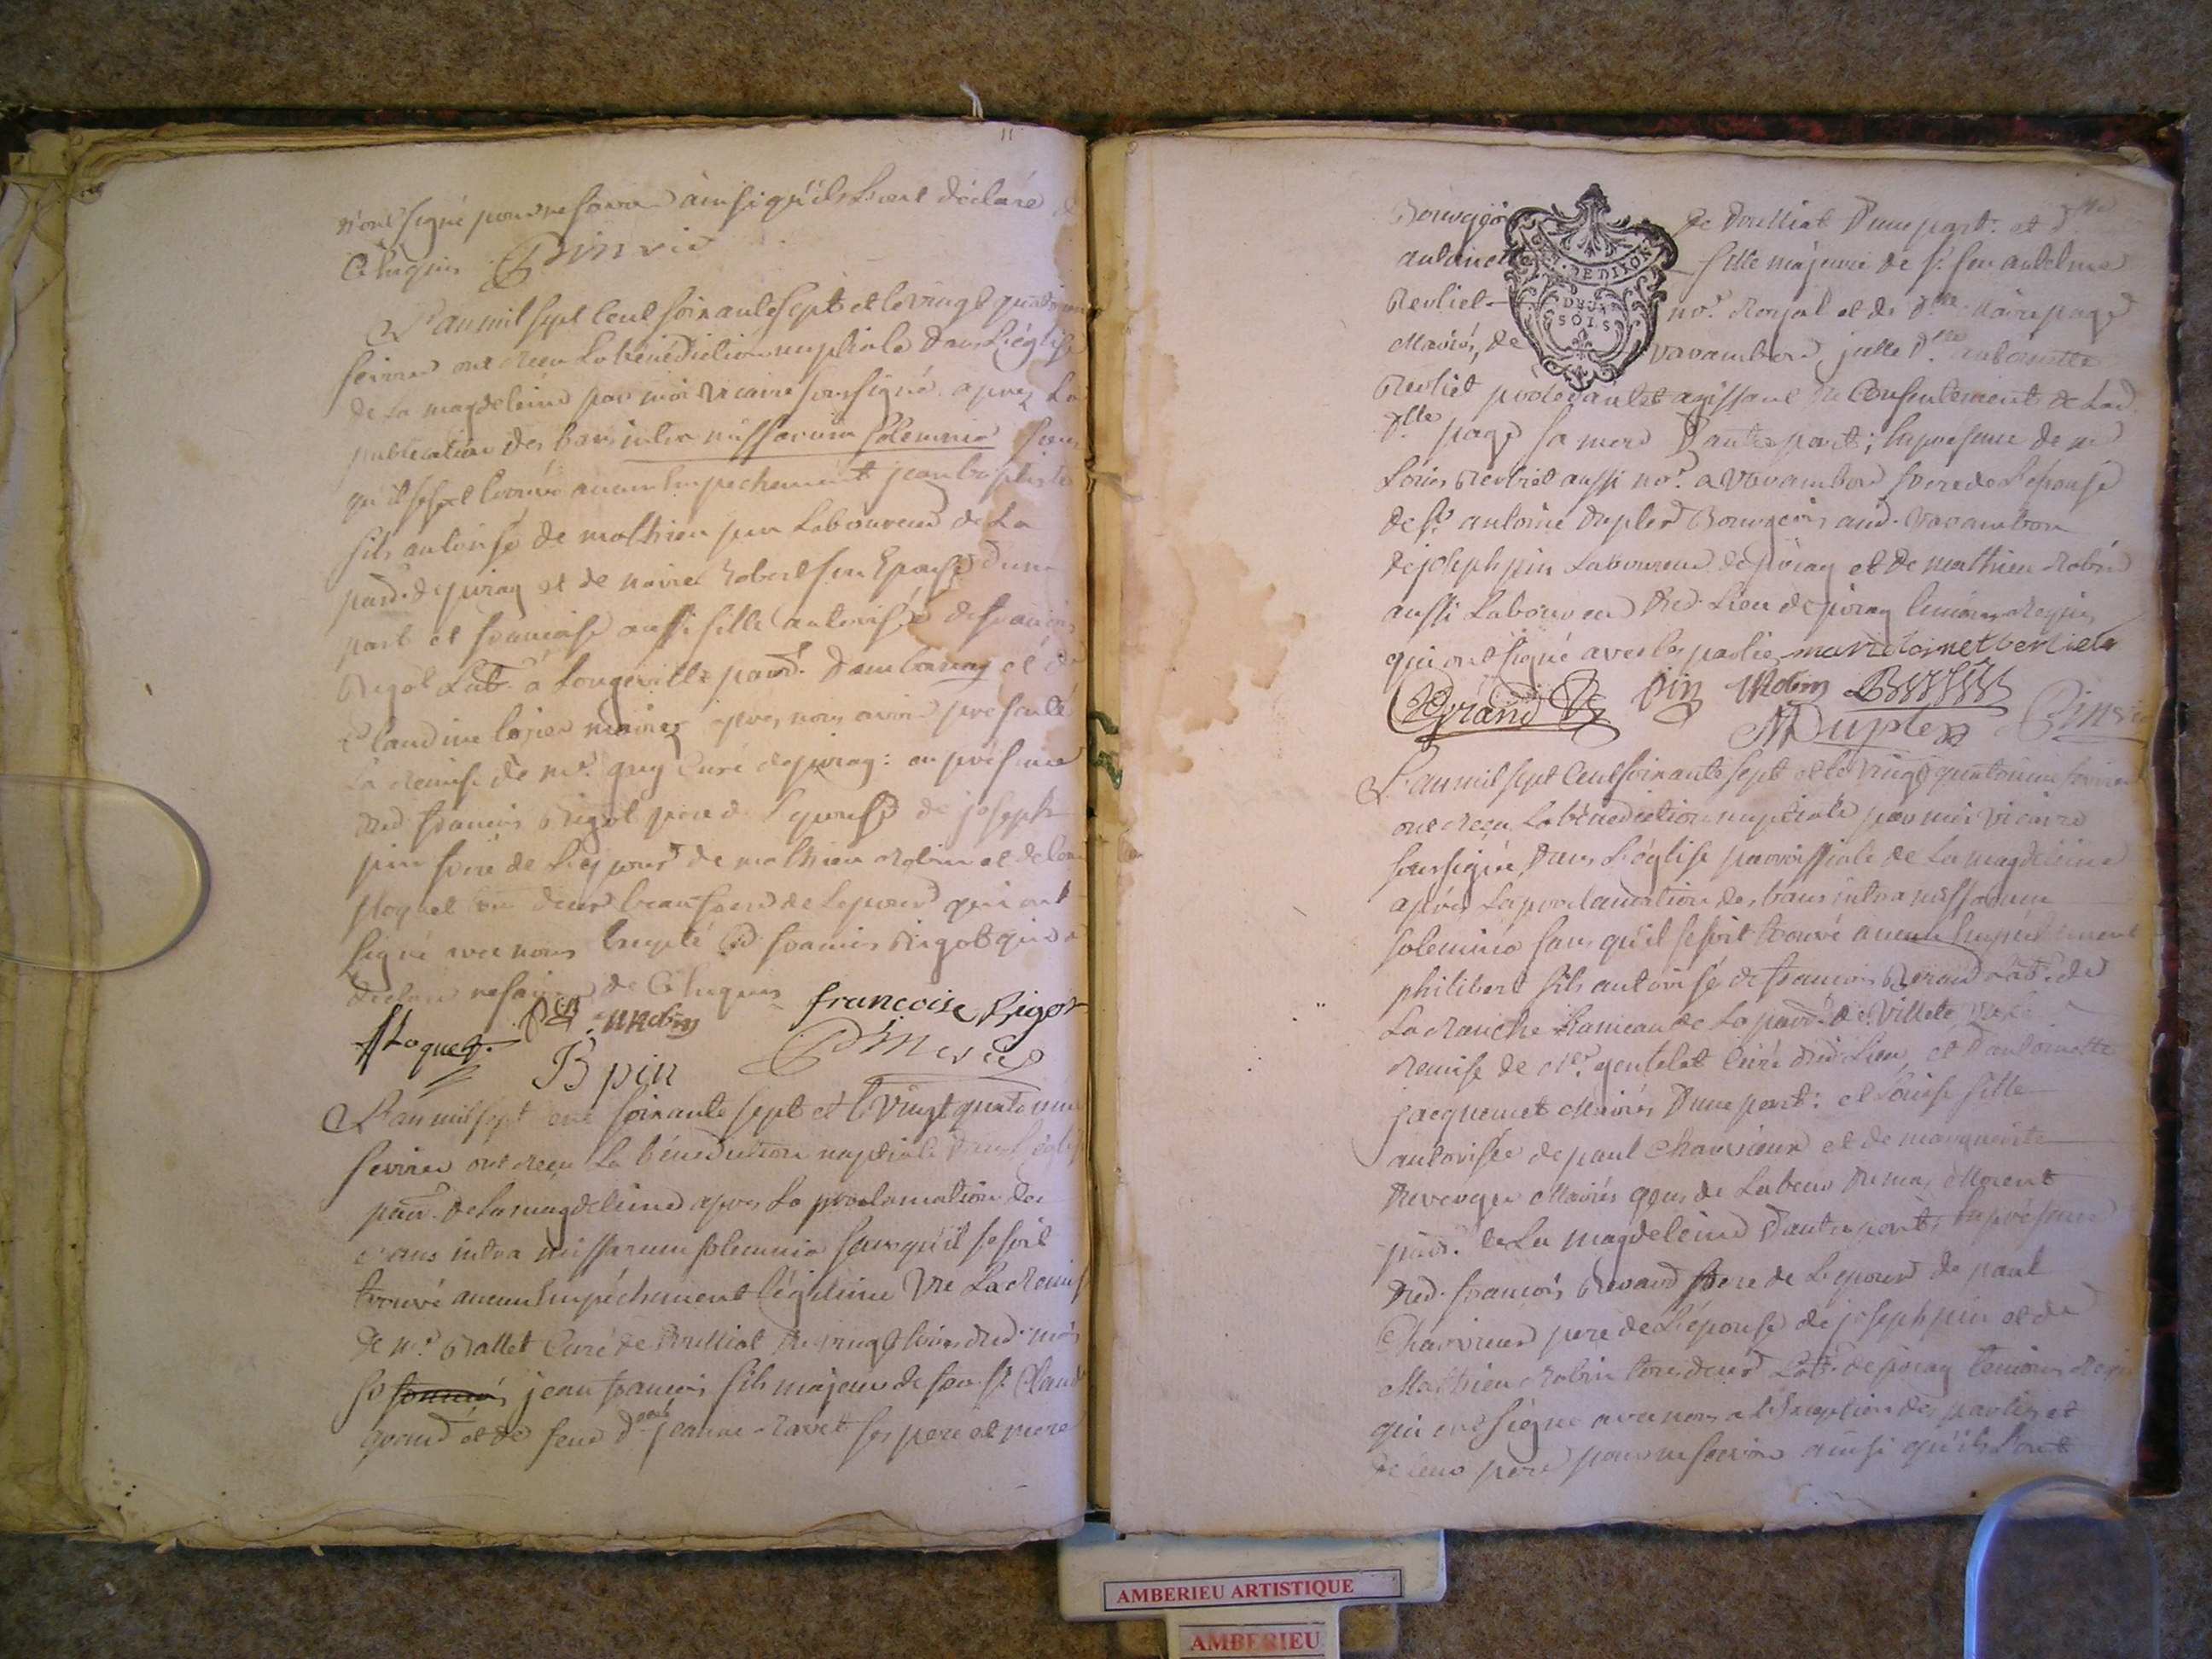 n'ont signé pour ne savoir ainsi qu'ils l'ont déclaré de
ce enquis Pin vic
L'an mil sept cent soixante sept et le vingt quatrieme
fevrier ont reçu la bénédiction nuptiale dans l'église
de la magdeleine par moi vicaire soussigné apres la
publication des bans intra missarum solemnia sans
qu'il se soit trouvé aucun empechement jean baptiste
fils autorisé de mathieu pin laboureur de la
paroi. de priay et de marie Robert son epouse d'une
part et francoise aussi fille autorisée de francois
Rigot Lab. à Longeville paroi. d'ambronay et de
Claudine mariez apres nous avoir presenté
la remise de mr. guy curé de priay: en présence
dud. francois Rigot pere de l'epouse de joseph
pin frere de l'epoux de mathieu Robin et de
ploquet deux beaufrere de l'epoux qui ont
signé avec nous excepté led. francois Rigot qui a
déclaré ne savoir de ce enquis françoise Rigot
ploquet. Pin MRobin
JB pin Pin vic
L'an mil sept cent soixante sept et le vingt quatrieme
fevrier ont reçu la bénédiction nuptiale dans l'église
paroi. de la magdeleine apres la proclamation des
bans intra missarum solemnia sans qu'il se soit
trouvé aucun empéchement légitime vu la remise
de mr. Rallet curé de Druilliat du vingt trois dud. mois
sr jean francois fils majeur de feu sr. Claude
grand et de feue dlle jeanne ravet ses pere et mere
11
Bourgeois de druilliat d'une part. et dlle
antoinette fille majeure de sr. feu antelme
Revliet no.re Royal et de dlle marie page
Mariés, de varambon, jcelle dlle antoinette
Revliet procedante et agissant du consentement de lad.
dlle page sa mere d'autre part; en presence de mr
Louis Revliet aussi no.re a varambon frere de l'epouse
de sr. antoine duplex Bourgeois aud. varambon
de joseph pin laboureur de priay et de mathieu Robin
aussi laboureur dud. lieu de priay temoins requis
qui ont signé avec les parties marie toinet berliet
Grand Pin MRobin Berliet
Duplex Pin vic
G. DE DIJON
DEUX
SOLS
L'an mil sept cent soixante sept et le vingt quatrieme fevrier
ont reçu la bénediction nuptiale par moi vicaire
soussigné dans l'église parroissiale de la magdeleine
aprés la proclamation des bans intra missarum
solemnia sans qu'il se soit trouvé aucun empechement
philibert fils autorisé de francois Renaud Lab. de
la ranche hameau de la paroi. de villete vu la
remise de mr. gentelet curé dud. lieu, et d'antoinette
jacquemet Mariés d'une part: et Louise fille
autorisée de paul Charvieux et de marguerite
Mariés gens de labeur
paroi. de la magdeleine d'autre part, en présence
dud. francois Renaud frere de l'epoux de paul
Charvieux pere de l'épouse de joseph pin et de
Mathieu Robin tous deux Lab. de priay temoins requis
qui ont signé avec nous a l'exception des parties et
de leur pere pour ne savoir ainsi qu'ils l'ont
AMBERIEU ARTISTIQUE
AMBERIEU